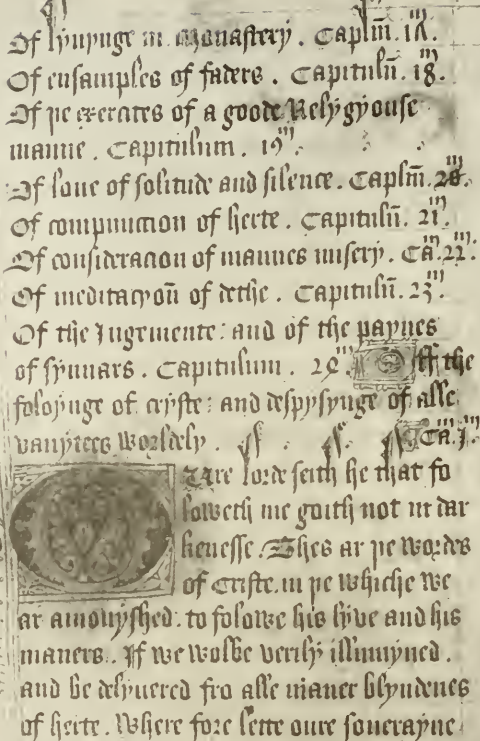 Of lyuynge in monastery . Caplm̄. 17.m
Of ensamples of faders . Capitulū. 18.m
Of þe exercates of a goode Relygyouse
manne . Capitulum . 19m.
Of loue of solitude and silence . Caplm̄. 20.m
Of compunccion of herte . Capitulū. 21.m
Of consideracion of mannes misery. Cā.22.m
Of meditacyoū of dethe . Capitulū. 23.m
Of the Jugemente: and of the paynes
of synnars . Capitulum . 24.m Off the
folowynge of cryste: and despysynge of alle
vanytees worldely . Cam. j.
Oure lorde seith he that fo
loweth me goith not in dar
kenesse. Thes ar þe wordes
of Criste. in þe whiche we
ar amonyshed: to folowe his lyve and his
maners. If we wolbe verily illumyned .
and be delyuered fro alle maner blyndenes
of herte. Where fore lette oure souerayne